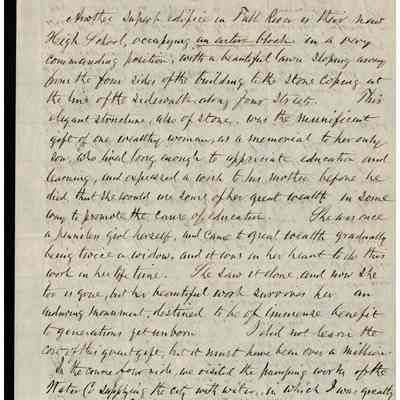 Another superb edifice in Fall River is their new
High School, occupying an entire block in a very
commanding position, with a beautiful lawn sloping away
from the four sides of the building to the stone coping at
the line of the sidewalk along four streets. This
elegant structure, also of stone, was the munificent
gift of one wealthy woman, as a memorial to her only
son, who lived long enough to appreciate education and
learning, and expressed a wish to his mother before he
died that she would use some of her great wealth in some
way to promote the cause of education. She was once
a penniless girl herself, and came to great wealth gradually
being twice a widow, and it was in her heart to do this
work in her life time. She saw it done, and now she
too is gone, but her beautiful work survives her an
enduring monument, destined to be of immense benefit
to generations yet unborn I did not learn the
cost of this grant gift, but it must have been over a million.
In the course of our ride, we visited the pumping works of the
Water Co supplying the city with water, in which I was greatly